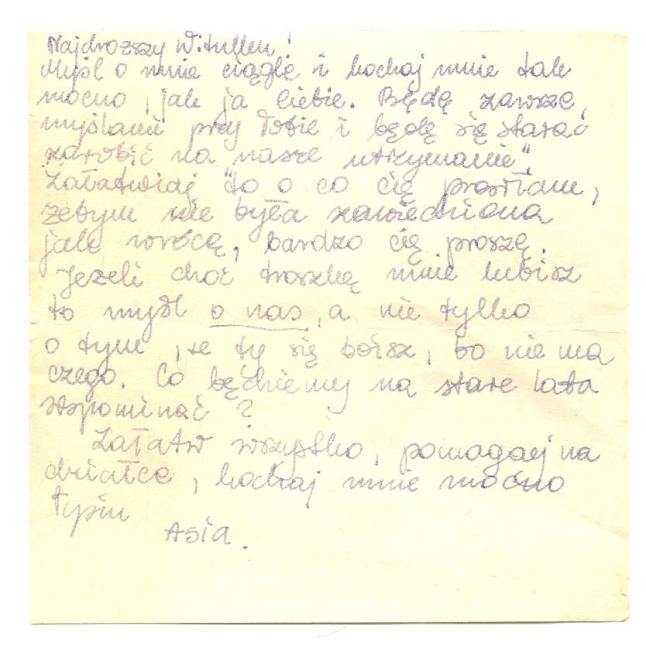 Najdroższy Witullen!
Myśl o mnie ciągle i kochaj mnie tak
mocno, jak ja Ciebie. Będę zawsze
myślami przy Tobie i będę się starać
zarobić na nasze "utrzymanie".
Załatwiaj to o co cię prosiłam,
żebym nie była zawiedziona
jak wrócę, bardzo cię proszę.
Jeżeli choć troszkę mnie lubisz
to myśl o nas, a nie tylko
o tym, że ty się boisz, bo nie ma
czego. Co będziemy na stare lata
wspominać?
Załatw wszystko, pomagaj na
działce, kochaj mnie mocno
Asia.